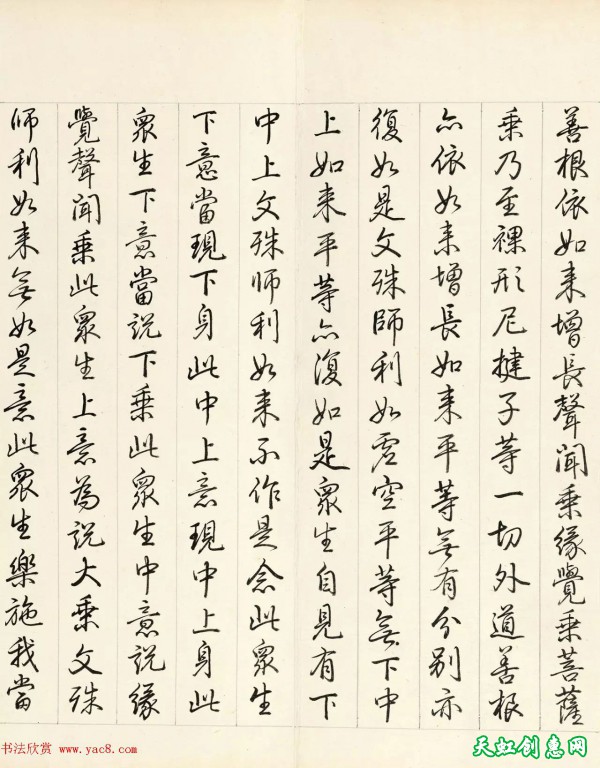 善根依如来增長聲聞乗緣覺乗菩薩
乗乃至裸形尼揵子等一切外道善根
亦依如来增長如来平等無有分别亦
復如是文殊師利如虚空平等無下中
上如来平等亦復如是衆生自見有下
中上文殊师利如来不作是念此衆生
下意當現下身此中上意現中上身此
衆生下意當説下乗此衆生中意説缘
覺聲聞乗此衆生上意為説大乗文殊
师利如来無如是意此衆生樂施我當
书法欣赏 www.yac8.com
天虹创惠网